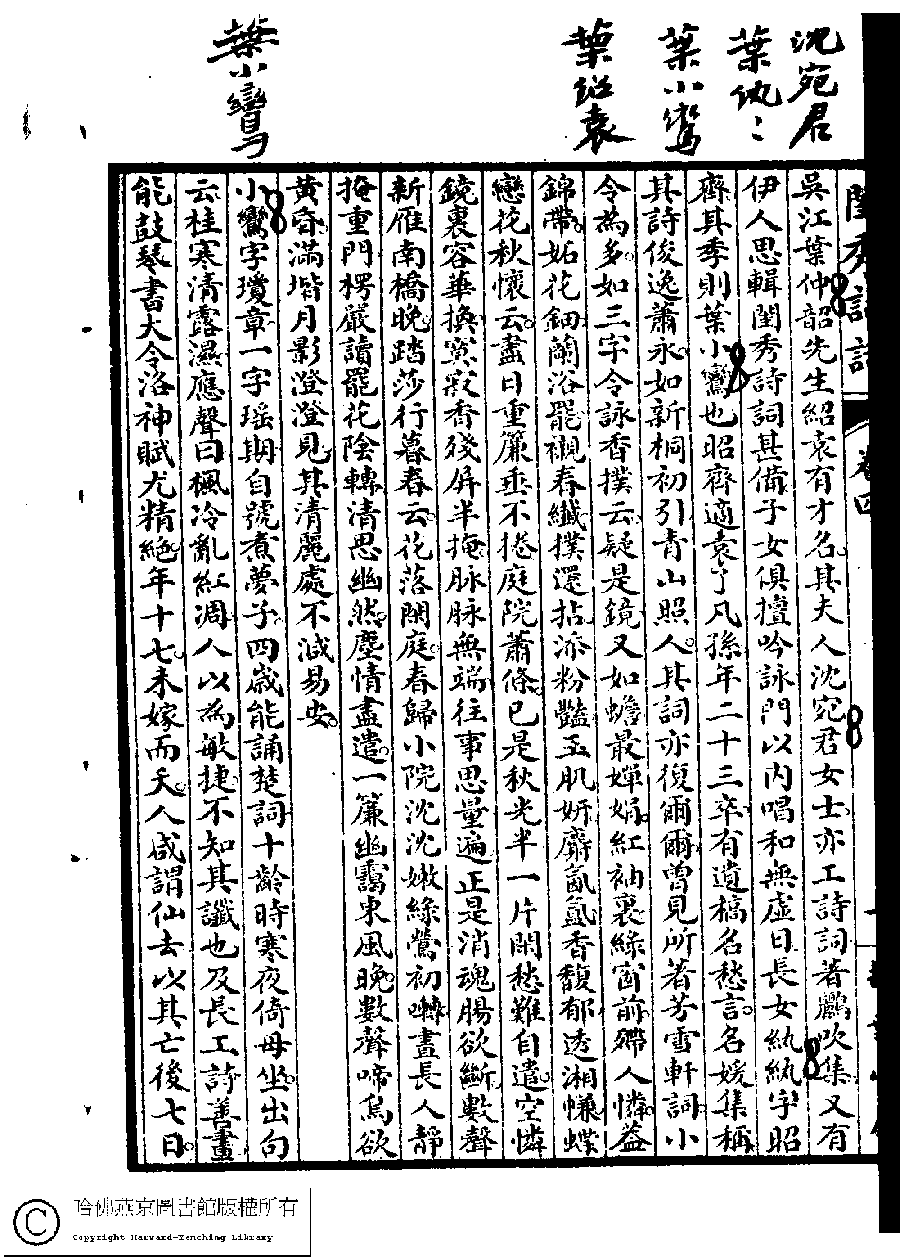 沈宛君
葉紈〻
葉小鸞
葉紹袁
葉小鸞
閨秀詞話 卷四
吳江葉仲韶先生紹袁有才名其夫人沈宛君女士亦工詩詞著鸝吹集又有
伊人思輯閨秀詩詞甚備子女俱擅吟詠門以內唱和無虛日長女紈紈字昭
齊其季則葉小鸞也昭齊適袁了凡孫年二十三卒有遺稿名愁言名媛集稱
其詩俊逸蕭永如新桐初引青山照人其詞亦復爾爾曾見所著芳雪軒詞小
令為多如三字令詠香撲云疑是鏡又如蟾最嬋娟紅袖裏綠窗前殢人憐益
錦帶妬花鈿蘭浴罷襯春纖撲還拈添粉豔玉肌妍麝氤氳香馥郁透湘縑蝶
戀花秋懷云盡日重簾垂不捲庭院蕭條已是秋光半一片閑愁難自遣空憐
鏡裏容華換寂寂香殘屏半掩脉脉無端往事思量遍正是消魂腸欲斷數聲
新雁南樓晚踏莎行暮春云花落閑庭春歸小院沈沈嫩綠鶯初囀晝長人靜
掩重門楞嚴讀罷花陰轉清思幽然塵情盡遣一簾幽靄東風晚數聲啼鳥欲
黃昏滿堦月影澄澄見其清麗處不減易安
小鸞字瓊章一字瑤期自號煮夢子四歲能誦楚詞十齡時寒夜倚母坐出句
云桂寒清露濕應聲曰楓冷亂紅凋人以為敏捷不知其讖也及長工詩善畫
能鼓琴書大令洛神賦尤精絕年十七未嫁而夭人咸謂仙去以其亡後七日
哈佛燕京圖書館版權所有
Copyright Harvard-Yenching Library